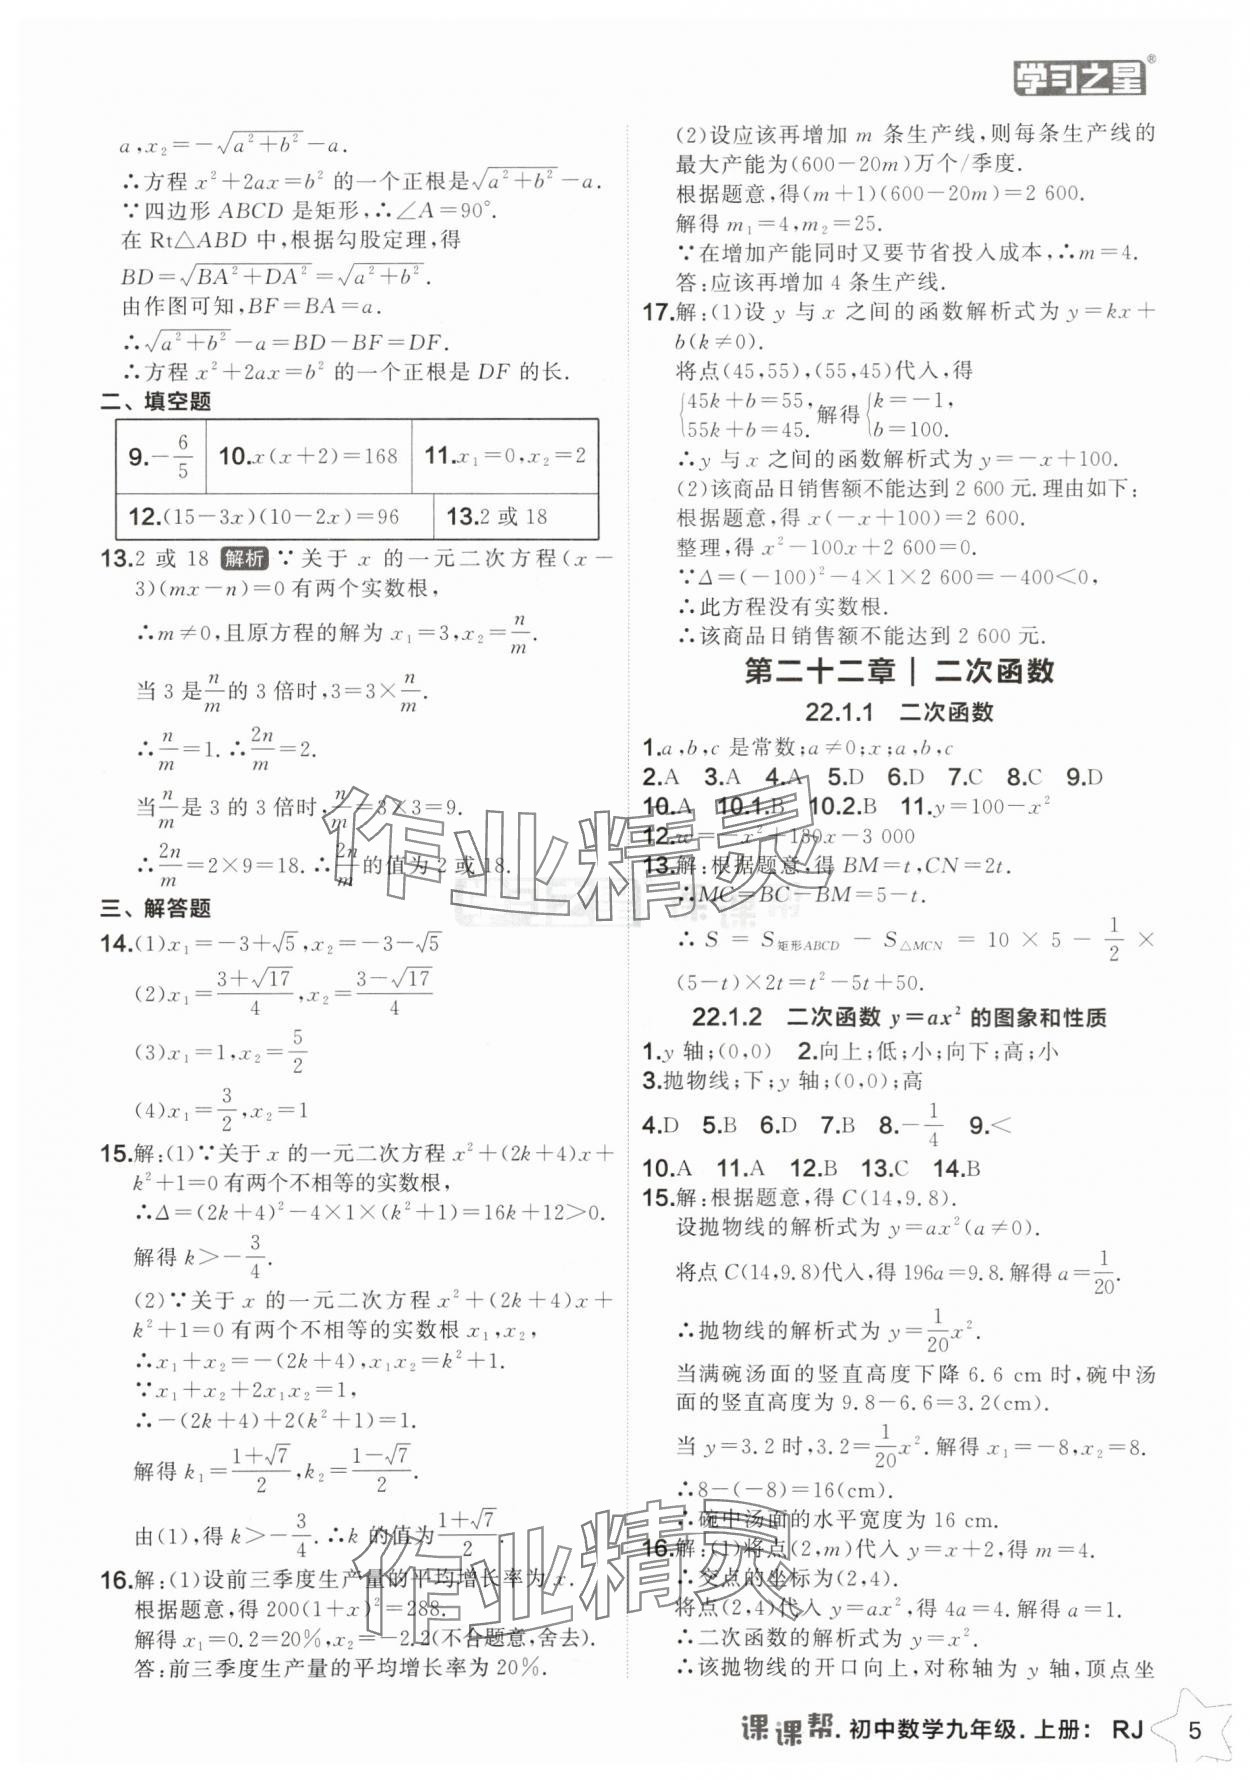 学习之星®
a,x₂=-√(a²+b²)-a.
∴方程 x²+2ax=b² 的一个正根是√(a²+b²)-a.
∵四边形 ABCD 是矩形,∴∠A=90°.
在 Rt△ABD 中,根据勾股定理,得
BD=√(BA²+DA²)=√(a²+b²).
由作图可知,BF=BA=a.
∴√(a²+b²)-a=BD-BF=DF.
∴方程 x²+2ax=b² 的一个正根是 DF 的长.
二、填空题
9.-6/5 10.x(x+2)=168 11.x₁=0,x₂=2
12.(15-3x)(10-2x)=96 13.2 或 18
13.2 或 18 解析 ∵关于 x 的一元二次方程(x-
3)(mx-n)=0 有两个实数根,
∴m≠0,且原方程的解为 x₁=3,x₂=n/m.
当 3 是n/m的 3 倍时,3=3×n/m.
∴n/m=1.∴2n/m=2.
当n/m是 3 的 3 倍时,n/m=3×3=9.
∴2n/m=2×9=18.∴2n/m的值为 2 或 18.
三、解答题
14.(1)x₁=-3+√5,x₂=-3-√5
(2)x₁=(3+√17)/4,x₂=(3-√17)/4
(3)x₁=1,x₂=5/2
(4)x₁=3/2,x₂=1
15.解:(1)∵关于 x 的一元二次方程 x²+(2k+4)x+
k²+1=0 有两个不相等的实数根,
∴Δ=(2k+4)²-4×1×(k²+1)=16k+12>0.
解得 k>-3/4.
(2)∵关于 x 的一元二次方程 x²+(2k+4)x+
k²+1=0 有两个不相等的实数根 x₁,x₂,
∴x₁+x₂=-(2k+4),x₁x₂=k²+1.
∵x₁+x₂+2x₁x₂=1,
∴-(2k+4)+2(k²+1)=1.
解得 k₁=(1+√7)/2,k₂=(1-√7)/2.
由(1),得 k>-3/4.∴k 的值为(1+√7)/2.
16.解:(1)设前三季度生产量的平均增长率为 x.
根据题意,得 200(1+x)²=288.
解得 x₁=0.2=20%,x₂=-2.2(不合题意,舍去).
答:前三季度生产量的平均增长率为 20%.
(2)设应该再增加 m 条生产线,则每条生产线的
最大产能为(600-20m)万个/季度.
根据题意,得(m+1)(600-20m)=2 600.
解得 m₁=4,m₂=25.
∵在增加产能同时又要节省投入成本,∴m=4.
答:应该再增加 4 条生产线.
17.解:(1)设 y 与 x 之间的函数解析式为 y=kx+
b(k≠0).
将点(45,55),(55,45)代入,得
{45k+b=55, 55k+b=45. 解得{k=-1, b=100.
∴y 与 x 之间的函数解析式为 y=-x+100.
(2)该商品日销售额不能达到 2 600 元.理由如下:
根据题意,得 x(-x+100)=2 600.
整理,得 x²-100x+2 600=0.
∵Δ=(-100)²-4×1×2 600=-400<0,
∴此方程没有实数根.
∴该商品日销售额不能达到 2 600 元.
第二十二章| 二次函数
22.1.1 二次函数
1.a,b,c 是常数;a≠0;x;a,b,c
2.A 3.A 4.A 5.D 6.D 7.C 8.C 9.D
10.A 10.1.B 10.2.B 11.y=100-x²
12.w=-x²+180x-3 000
13.解:根据题意,得 BM=t,CN=2t.
∴MC=BC-BM=5-t.
∴S=S矩形ABCD-S△MCN=10×5-1/2×
(5-t)×2t=t²-5t+50.
22.1.2 二次函数 y=ax² 的图象和性质
1.y 轴;(0,0) 2.向上;低;小;向下;高;小
3.抛物线;下;y 轴;(0,0);高
4.D 5.B 6.D 7.B 8.-1/4 9.<
10.A 11.A 12.B 13.C 14.B
15.解:根据题意,得 C(14,9.8).
设抛物线的解析式为 y=ax²(a≠0).
将点 C(14,9.8)代入,得 196a=9.8.解得 a=1/20.
∴抛物线的解析式为 y=1/20x².
当满碗汤面的竖直高度下降 6.6 cm 时,碗中汤
面的竖直高度为 9.8-6.6=3.2(cm).
当 y=3.2 时,3.2=1/20x².解得 x₁=-8,x₂=8.
∴8-(-8)=16(cm).
∴碗中汤面的水平宽度为 16 cm.
16.解:(1)将点(2,m)代入 y=x+2,得 m=4.
∴交点的坐标为(2,4).
将点(2,4)代入 y=ax²,得 4a=4.解得 a=1.
∴二次函数的解析式为 y=x².
∴该抛物线的开口向上,对称轴为 y 轴,顶点坐
作业精灵
作业精灵
课课帮.初中数学九年级.上册: RJ
5